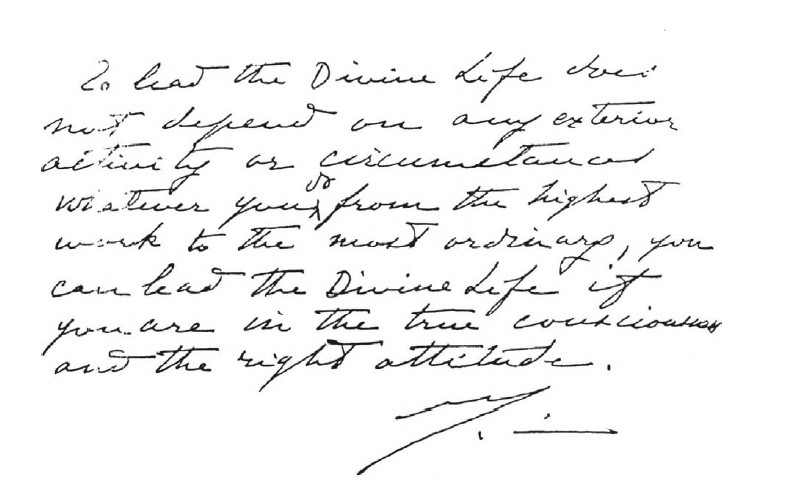 To lead the Divine Life does
not depend on any exterior
activity or circumstances
whatever you do from the highest
work to the most ordinary, you
can lead the Divine Life if
you are in the true consciousness
and the right attitude.